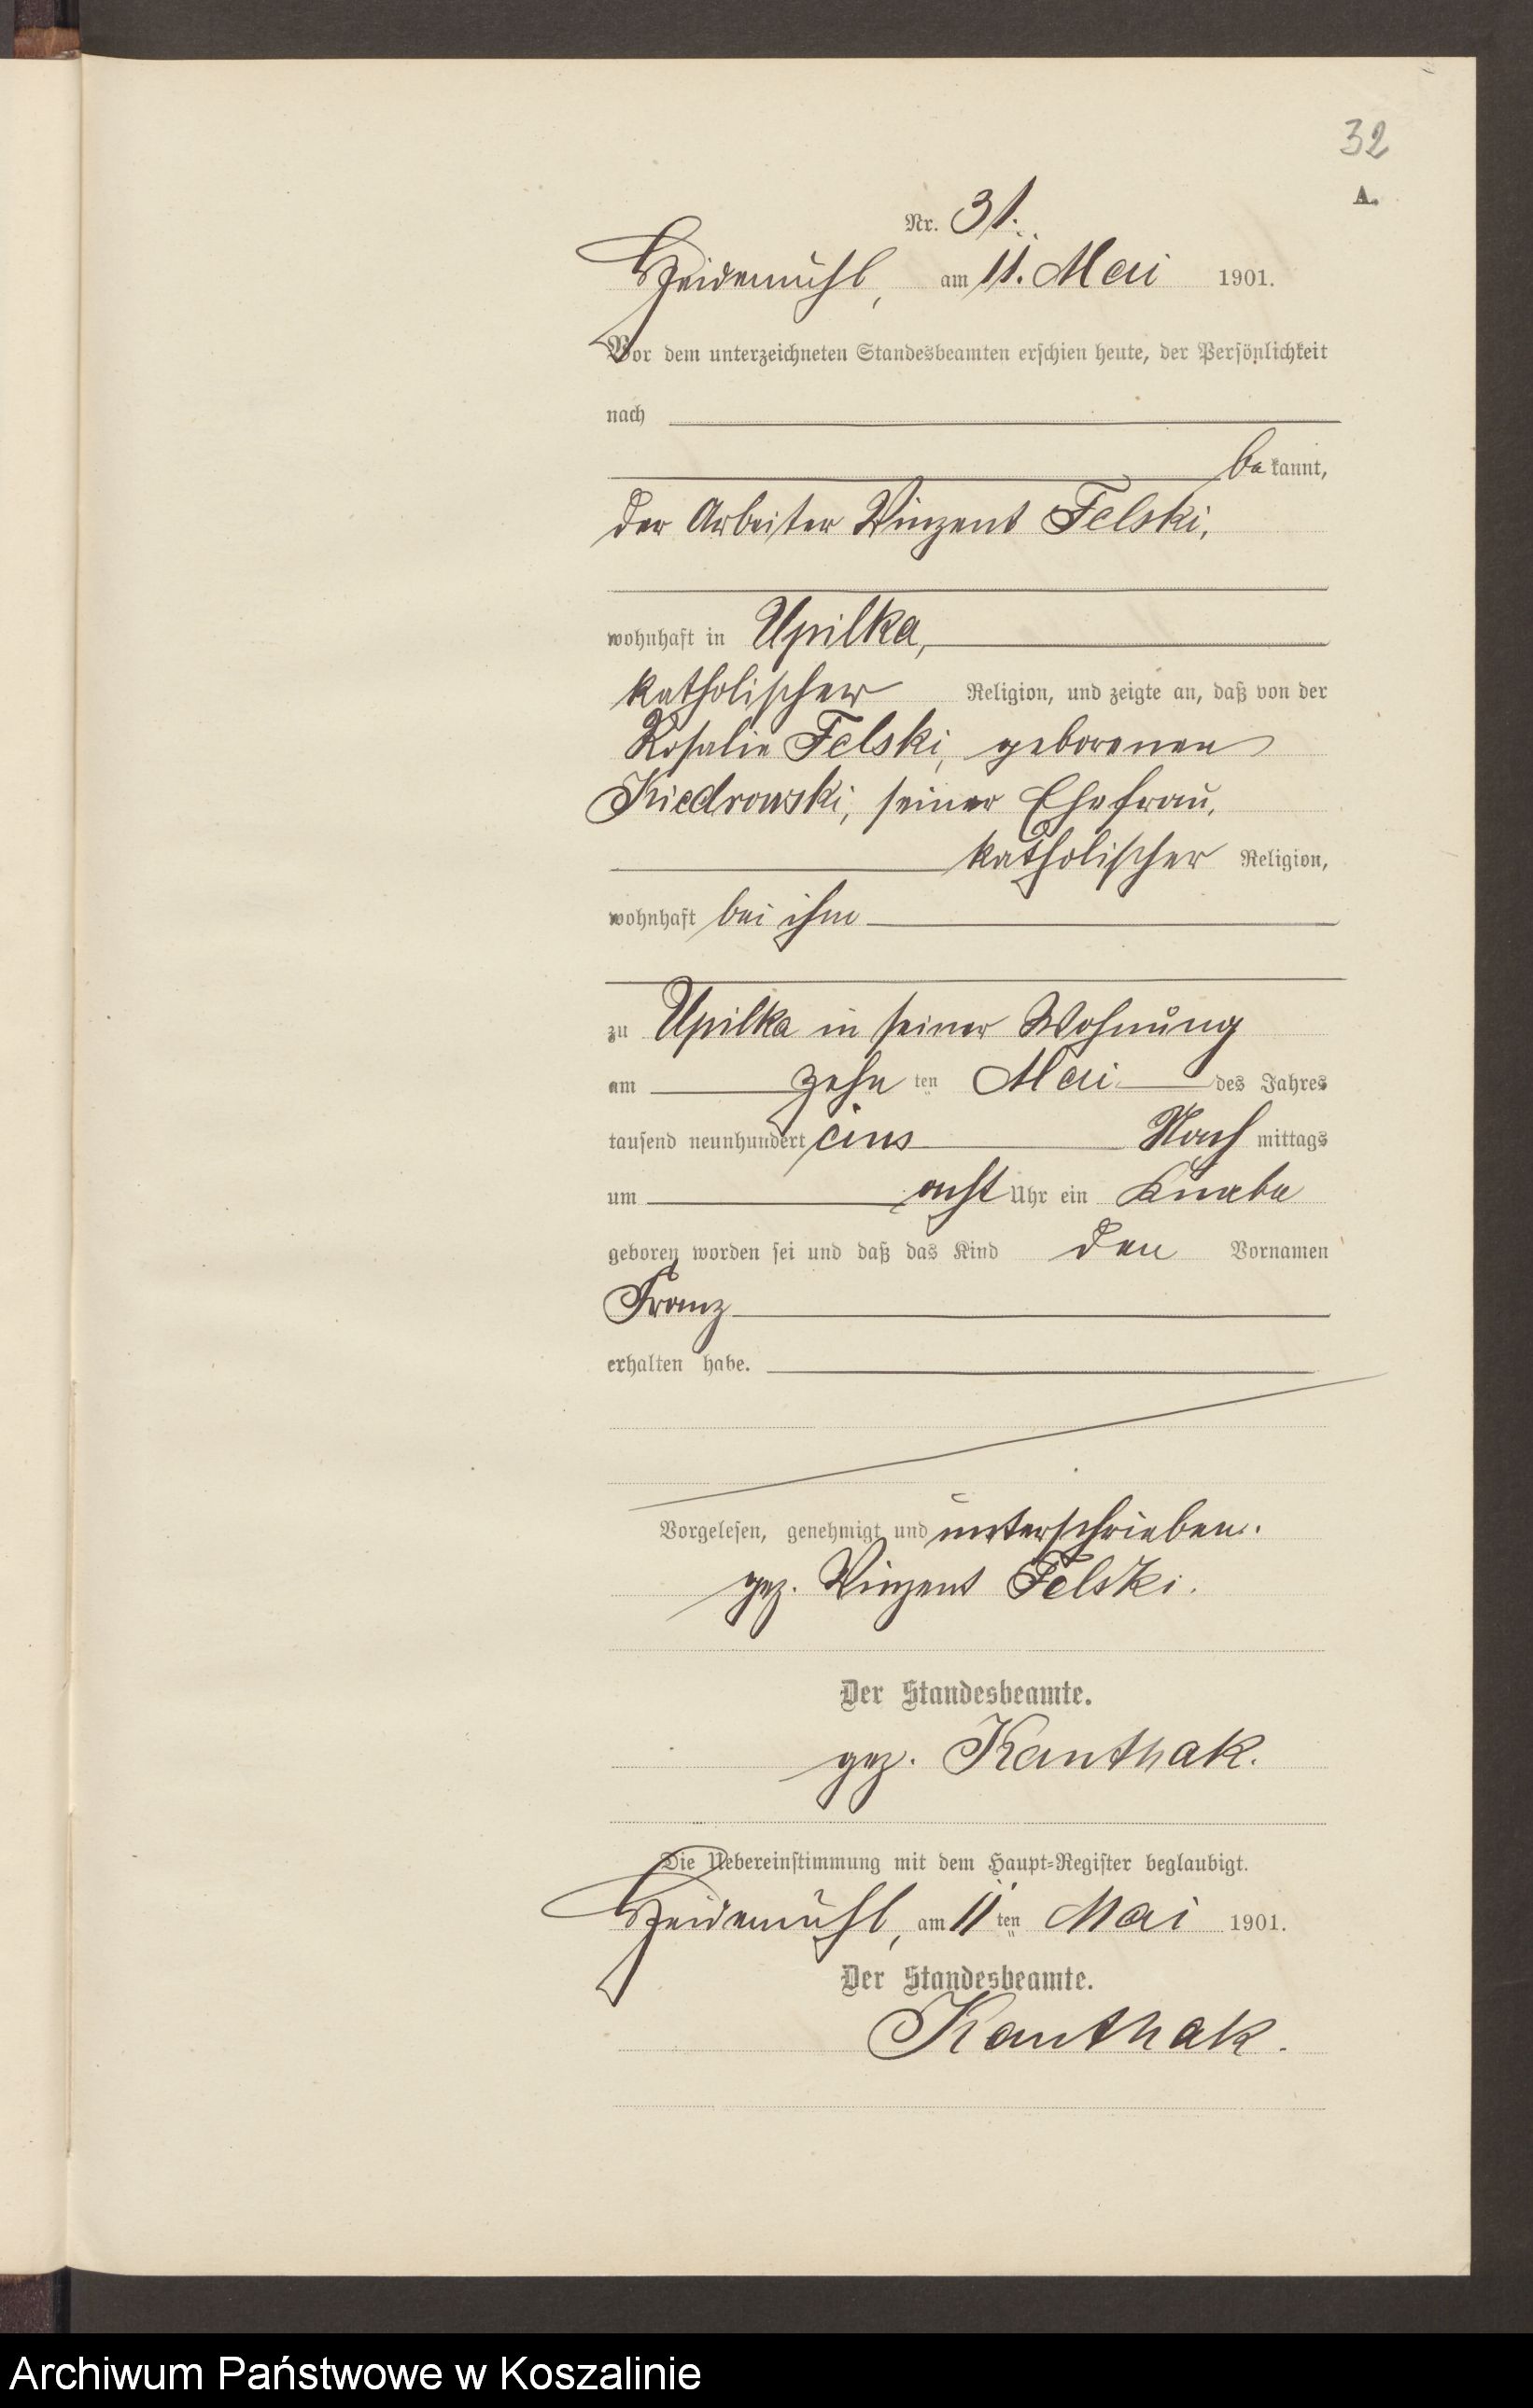 32
A.
Nr. 31.
Heidemühl, am 11. Mai 1901.
Vor dem unterzeichneten Standesbeamten erschien heute, der Persönlichkeit
nach
bekannt,
der Arbeiter Vinzent Felski,
wohnhaft in Upilka,
katholischer Religion, und zeigte an, daß von der
Rosalie Felski, geborenen
Kiedrowski, seiner Ehefrau,
katholischer Religion,
wohnhaft bei ihm
zu Upilka in seiner Wohnung
am zehn ten Mai des Jahres
tausend neunhundert eins Nachmittags
um acht Uhr ein Knabe
geboren worden sei und daß das Kind den Vornamen
Franz
erhalten habe.
Vorgelesen, genehmigt und unterschrieben.
gez. Vinzent Felski.
Der Standesbeamte.
gez. Kanthak.
Die Uebereinstimmung mit dem Haupt-Register beglaubigt.
Heidemühl, am 11ten Mai 1901.
Der Standesbeamte.
Kanthak.
Archiwum Państwowe w Koszalinie